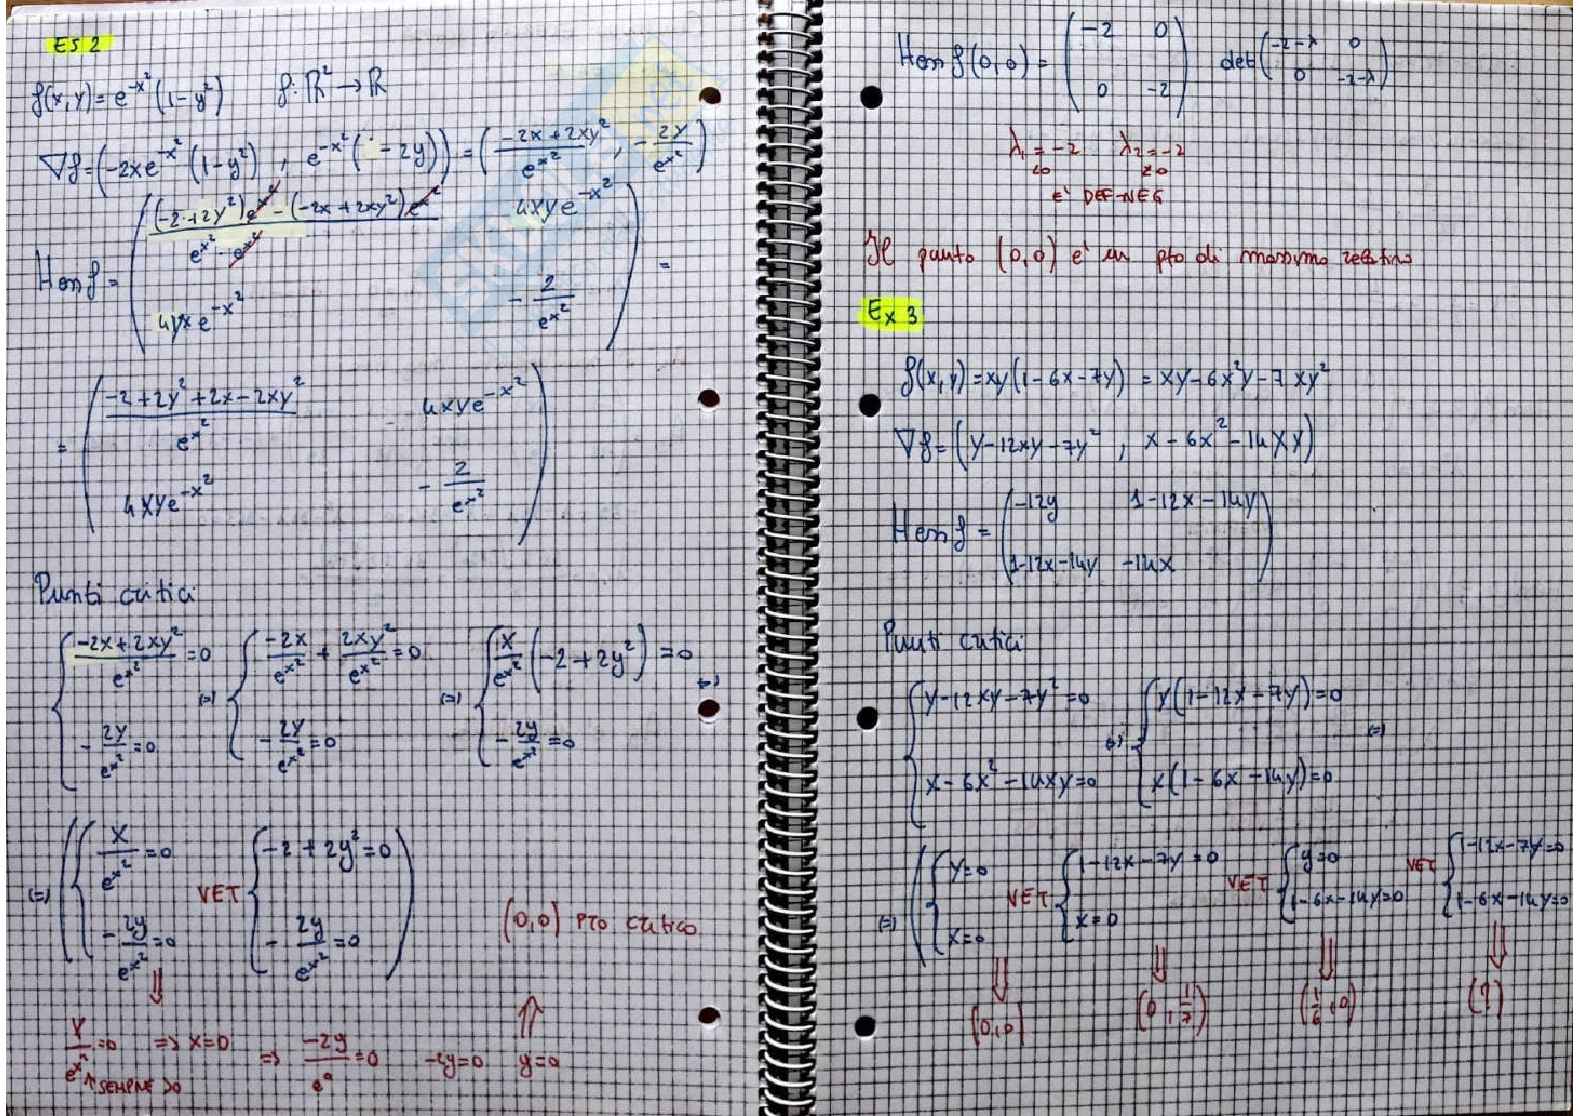 ES 2
f(x,y) = e^{-x²}(1-y²)   f: ℝ² → ℝ
∇f = (-2xe^{-x²}(1-y²), e^{-x²}(-2y)) = ((-2x+2xy²)/e^{x²}, -2y/e^{x²})
Hess f = ( ((-2+2y²)e^{x²} - (-2x+2xy²)e^{x²})/(e^{x²}·e^{x²})   4xye^{-x²}
4yxe^{-x²}   -2/e^{x²} ) =
= ( (-2+2y²+2x-2xy²)/e^{x²}   4xye^{-x²}
4xye^{-x²}   -2/e^{x²} )
Punti critici
{ (-2x+2xy²)/e^{x²} = 0   (=) { -2x/e^{x²} + 2xy²/e^{x²} = 0   (=) { x/e^{x²} (-2+2y²) = 0   (=)
-2y/e^{x²} = 0   -2y/e^{x²} = 0   -2y/e^{x²} = 0
(=) ( { x/e^{x²} = 0   VET { -2+2y² = 0 )
-2y/e^{x²} = 0   -2y/e^{x²} = 0   (0,0) PTO critico
x/e^{x²} = 0 => x=0 => -2y/e^0 = 0   -2y=0   y=0
↑ SEMPRE >0
Hess f(0,0) = ( -2 0   det( -2-λ 0
0 -2 )   0 -2-λ )
λ₁ = -2   λ₂ = -2
<0   <0
E' DEF-NEG
Il punto (0,0) e' un pto di massimo relativo
Ex 3
f(x,y) = xy(1-6x-7y) = xy-6x²y-7xy²
∇f = (y-12xy-7y², x-6x²-14xy)
Hess f = ( -12y   1-12x-14y
1-12x-14y   -14x )
Punti critici
{ y-12xy-7y² = 0   (=) { y(1-12x-7y) = 0   (=)
x-6x²-14xy = 0   x(1-6x-14y) = 0
(=) ( { y=0   VET { 1-12x-7y = 0   VET { y=0   VET { 1-12x-7y=0
x=0   x=0   1-6x-14y=0   1-6x-14y=0
(0,0)   (0, 1/7)   (1/6, 0)   (?)